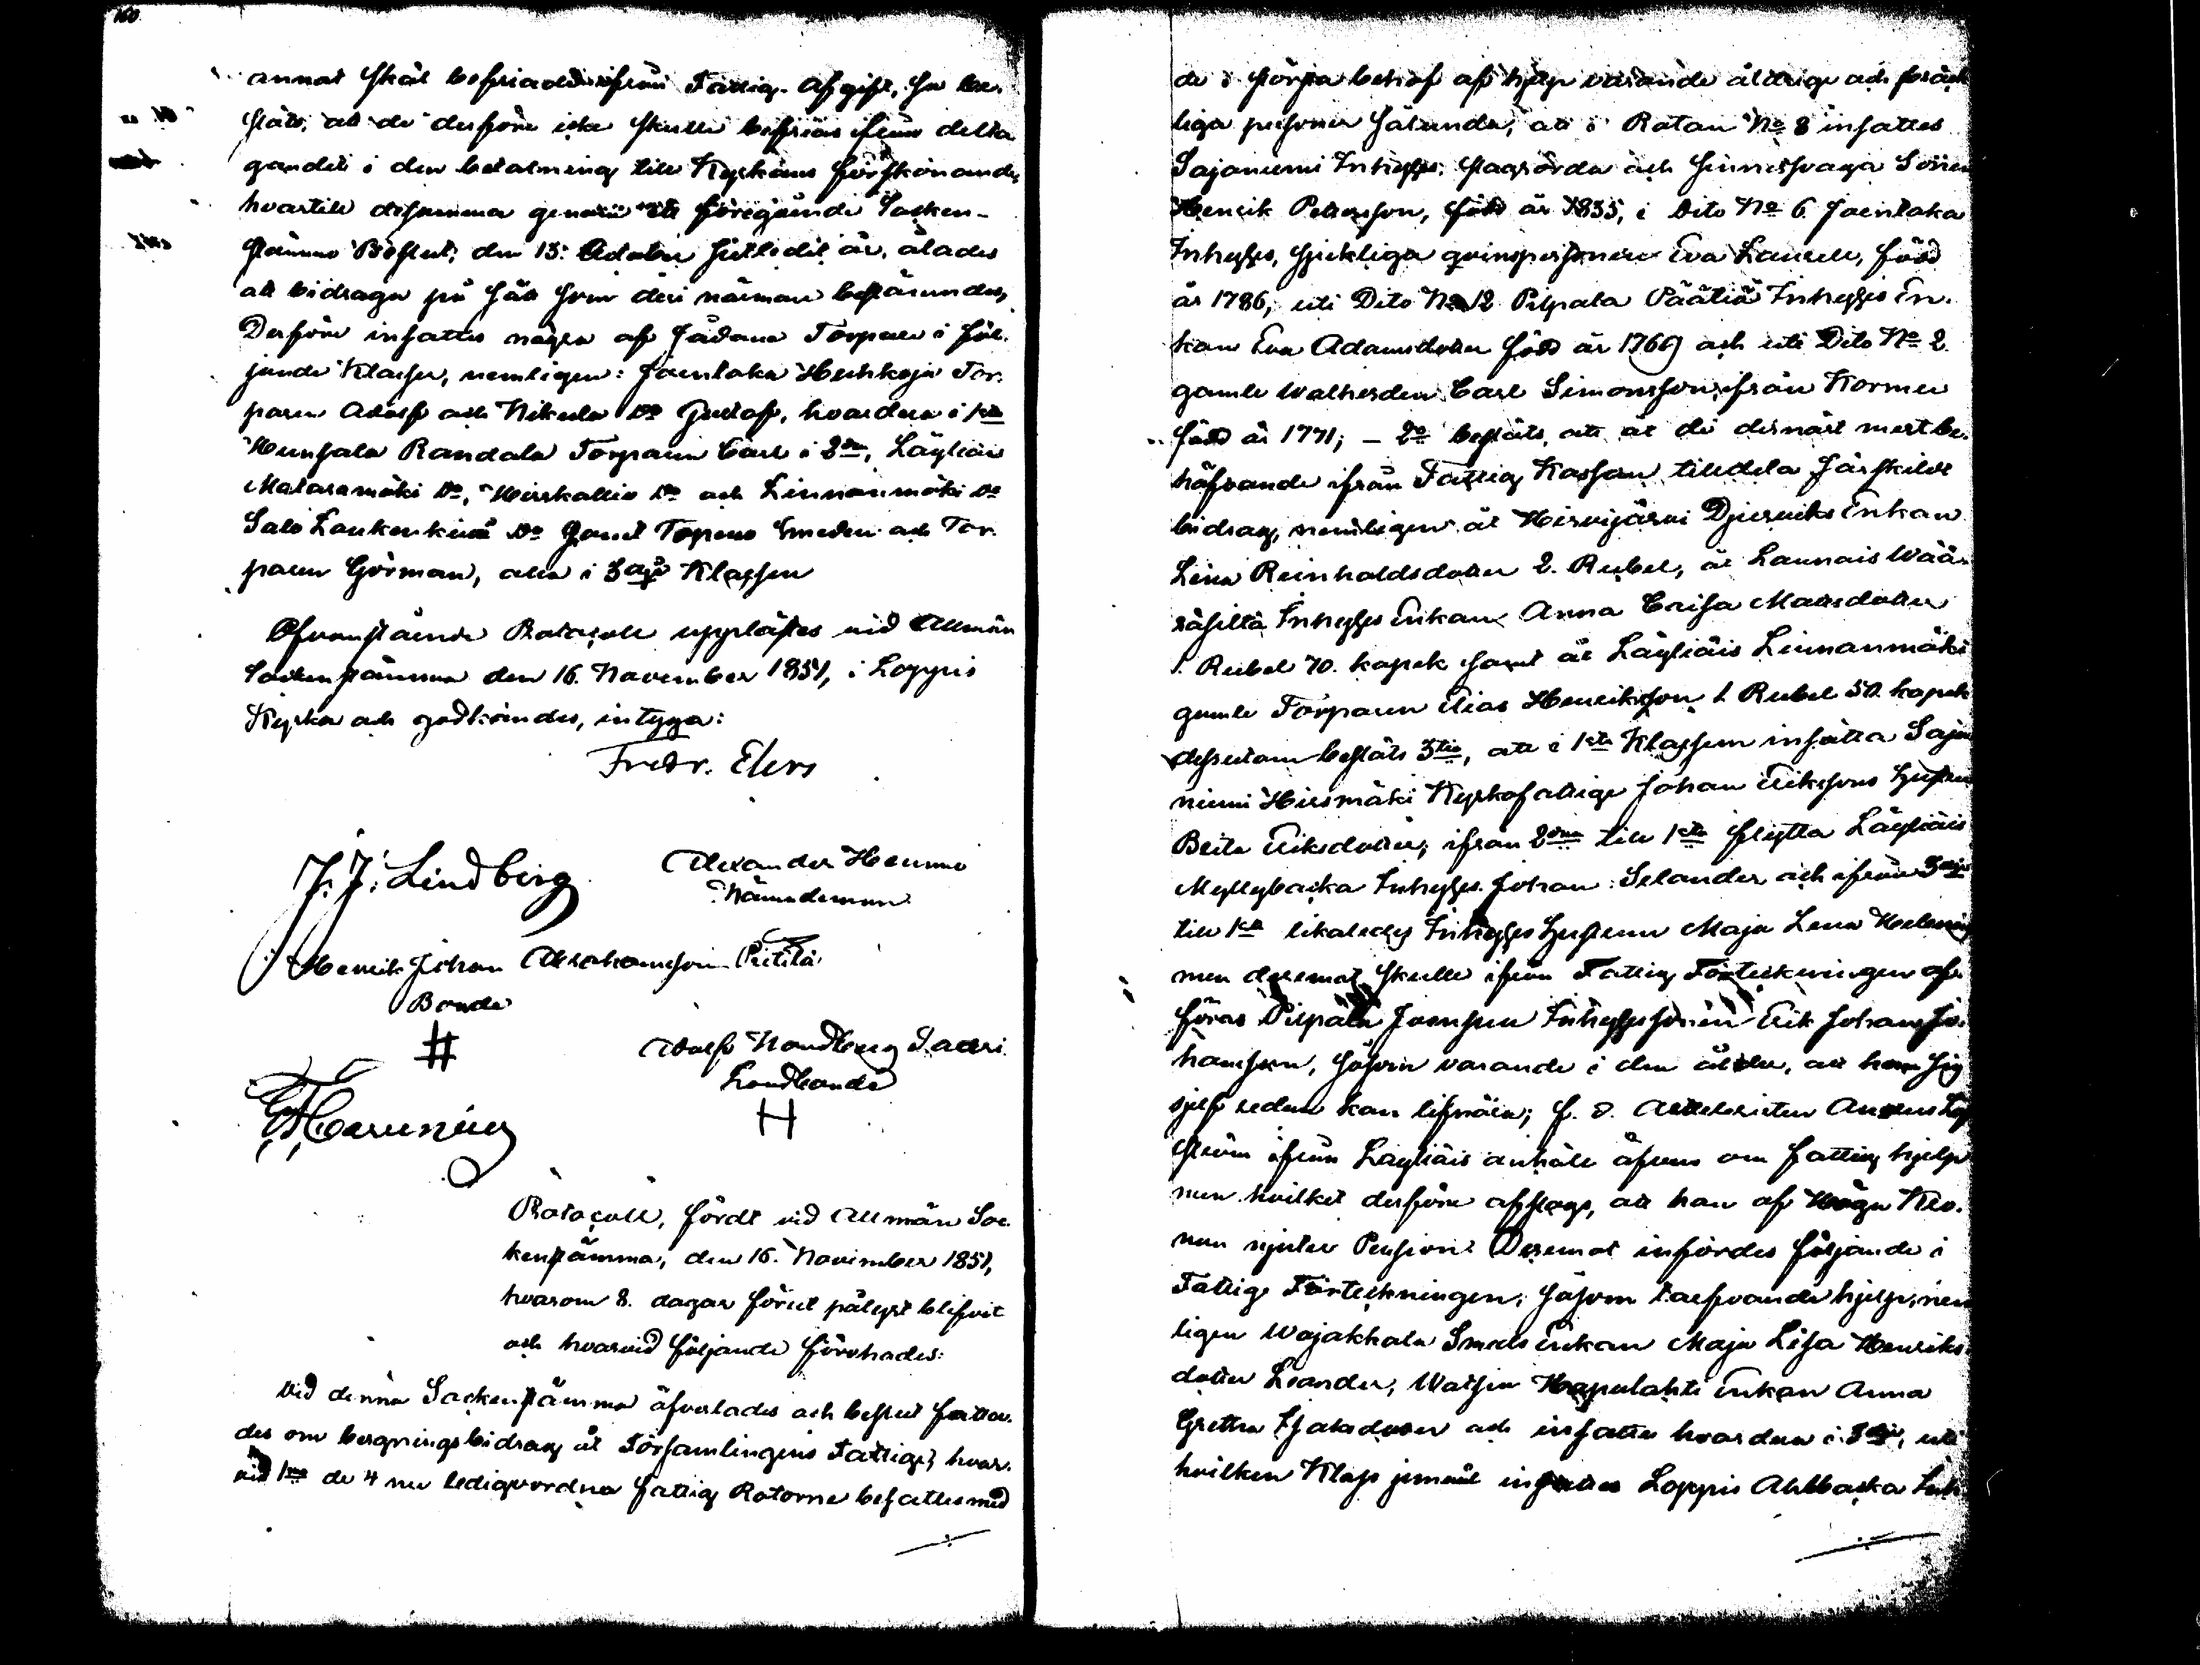 160.
annat skäl befriade ifrån Fattig-Afgift, så be-
slöts, att de derföre icke skulle befrias ifrån delta
gandet i den betalning till Kyrkans förskönande,
hvartill desamma genom ett föregående Socken-
stämmo Beslut, den 13. October sistledit år, ålades
att bidraga på sätt som deri närmare bestämdes,
Derföre insattes några af sådane Torpare i föl-
jande Klasser, nemligen: Joentaka Huhkoja Tor-
paren Adolf och Nikula Do Gustaf, hvardera i 1sta
Hunsala Randala Torparen Carl i 2dra, Läyliäis
Mataramäki Do, Hirskallio Do och Linnanmäki Do
Salo Laukenkivi Do samt Topeno Smeden och Tor-
paren Görman, alla i 3dje Klassen
Ofvanstående Protocoll upplästes vid Allmän
Sockenstämma den 16. November 1851, i Loppis
Kyrka och godkändes, intyga:
Fredr. Elers
J. J. Lindberg Alexander Hemmo
Nämndeman
Henrik Johan Abrahamsson Pietilä
Bonde
Adolf Nordberg Saari
Landbonde
H
Protocoll, fördt vid Allmän Soc-
kenstämma, den 16. November 1851,
hvarom 8. dagar förut pålyst blifvit
och hvarvid följande förehades:
Vid denna Sockenstämma öfverlades och beslut fatta-
des om bergningsbidrag åt Församlingens Fattige; hvar-
vid 1mo de 4 nu ledigvordna fattig Rotorne besattes med
de i största behof af hjelp varande åldrige och bräck-
liga personer sålunda, att i Rotan No 8 insattes
Sajaniemi Inhyses slagrörda och sinnessvaga Sonen
Henrik Petersson, född år 1835, i Dito No 6 Joentaka
Inhyses, sjukliga qvinspersonen Eva Laurell, född
år 1786, uti Dito No 12 Pilpala Päätiä Inhyses En-
kan Eva Adamsdotter född år 1766) och uti Dito No 2.
gamle Walherden Carl Simonsson ifrån Kormu
född år 1771; – 2o beslöts, att åt de dernäst mest be-
höfvande ifrån Fattig Kassan tilldela särskildt
bidrag, nemligen åt Hirvijärvi Djurviks Enkan
Lena Reinholdsdotter 2. Rubel, åt Launois Wää-
räsiltä Inhyses Enkan Anna Caisa Matsdotter
1. Rubel 70. kopek samt åt Läyliäis Linnanmäki
gamle Torparen Elias Henriksson 1 Rubel 50. kopek
dessutom beslöts 3tio, att i 1sta Klassen insätta Saja
niemi Hirsmäki Kyrkofattige Johan Erikssons hustru
Brita Eriksdotter; ifrån 2dra till 1sta flytta Läyliäis
Myllybacka Inhyses Johan Selander och ifrån 3dje
till 1sta likaledes Inhyses Hustrun Maja Lena
men deremot skulle ifrån Fattig Förteckningen af-
föras Pilpala Inhyses sonen Erik Johan Jo-
hansson, såsom varande i den ålder, att han sig
sjelf redan kan lifnära; f. d.
ström ifrån Läyliäis anhöll äfvens om fattig hjelp
men hvilket derföre afslogs, att han af Höga Kro-
nan njuter Pension. Deremot infördes följande i
Fattig Förteckningen, såsom tarfvande hjelp, nem
ligen Wojakkala Smeds Enkan Maja Lisa Henriks
dotter Leander, Watsia Hapulahti Enkan Anna
Gretha och insattes hvardera i 3dje, uti
hvilken Klass jemväl insattes Loppis Ahlbacka Inh-